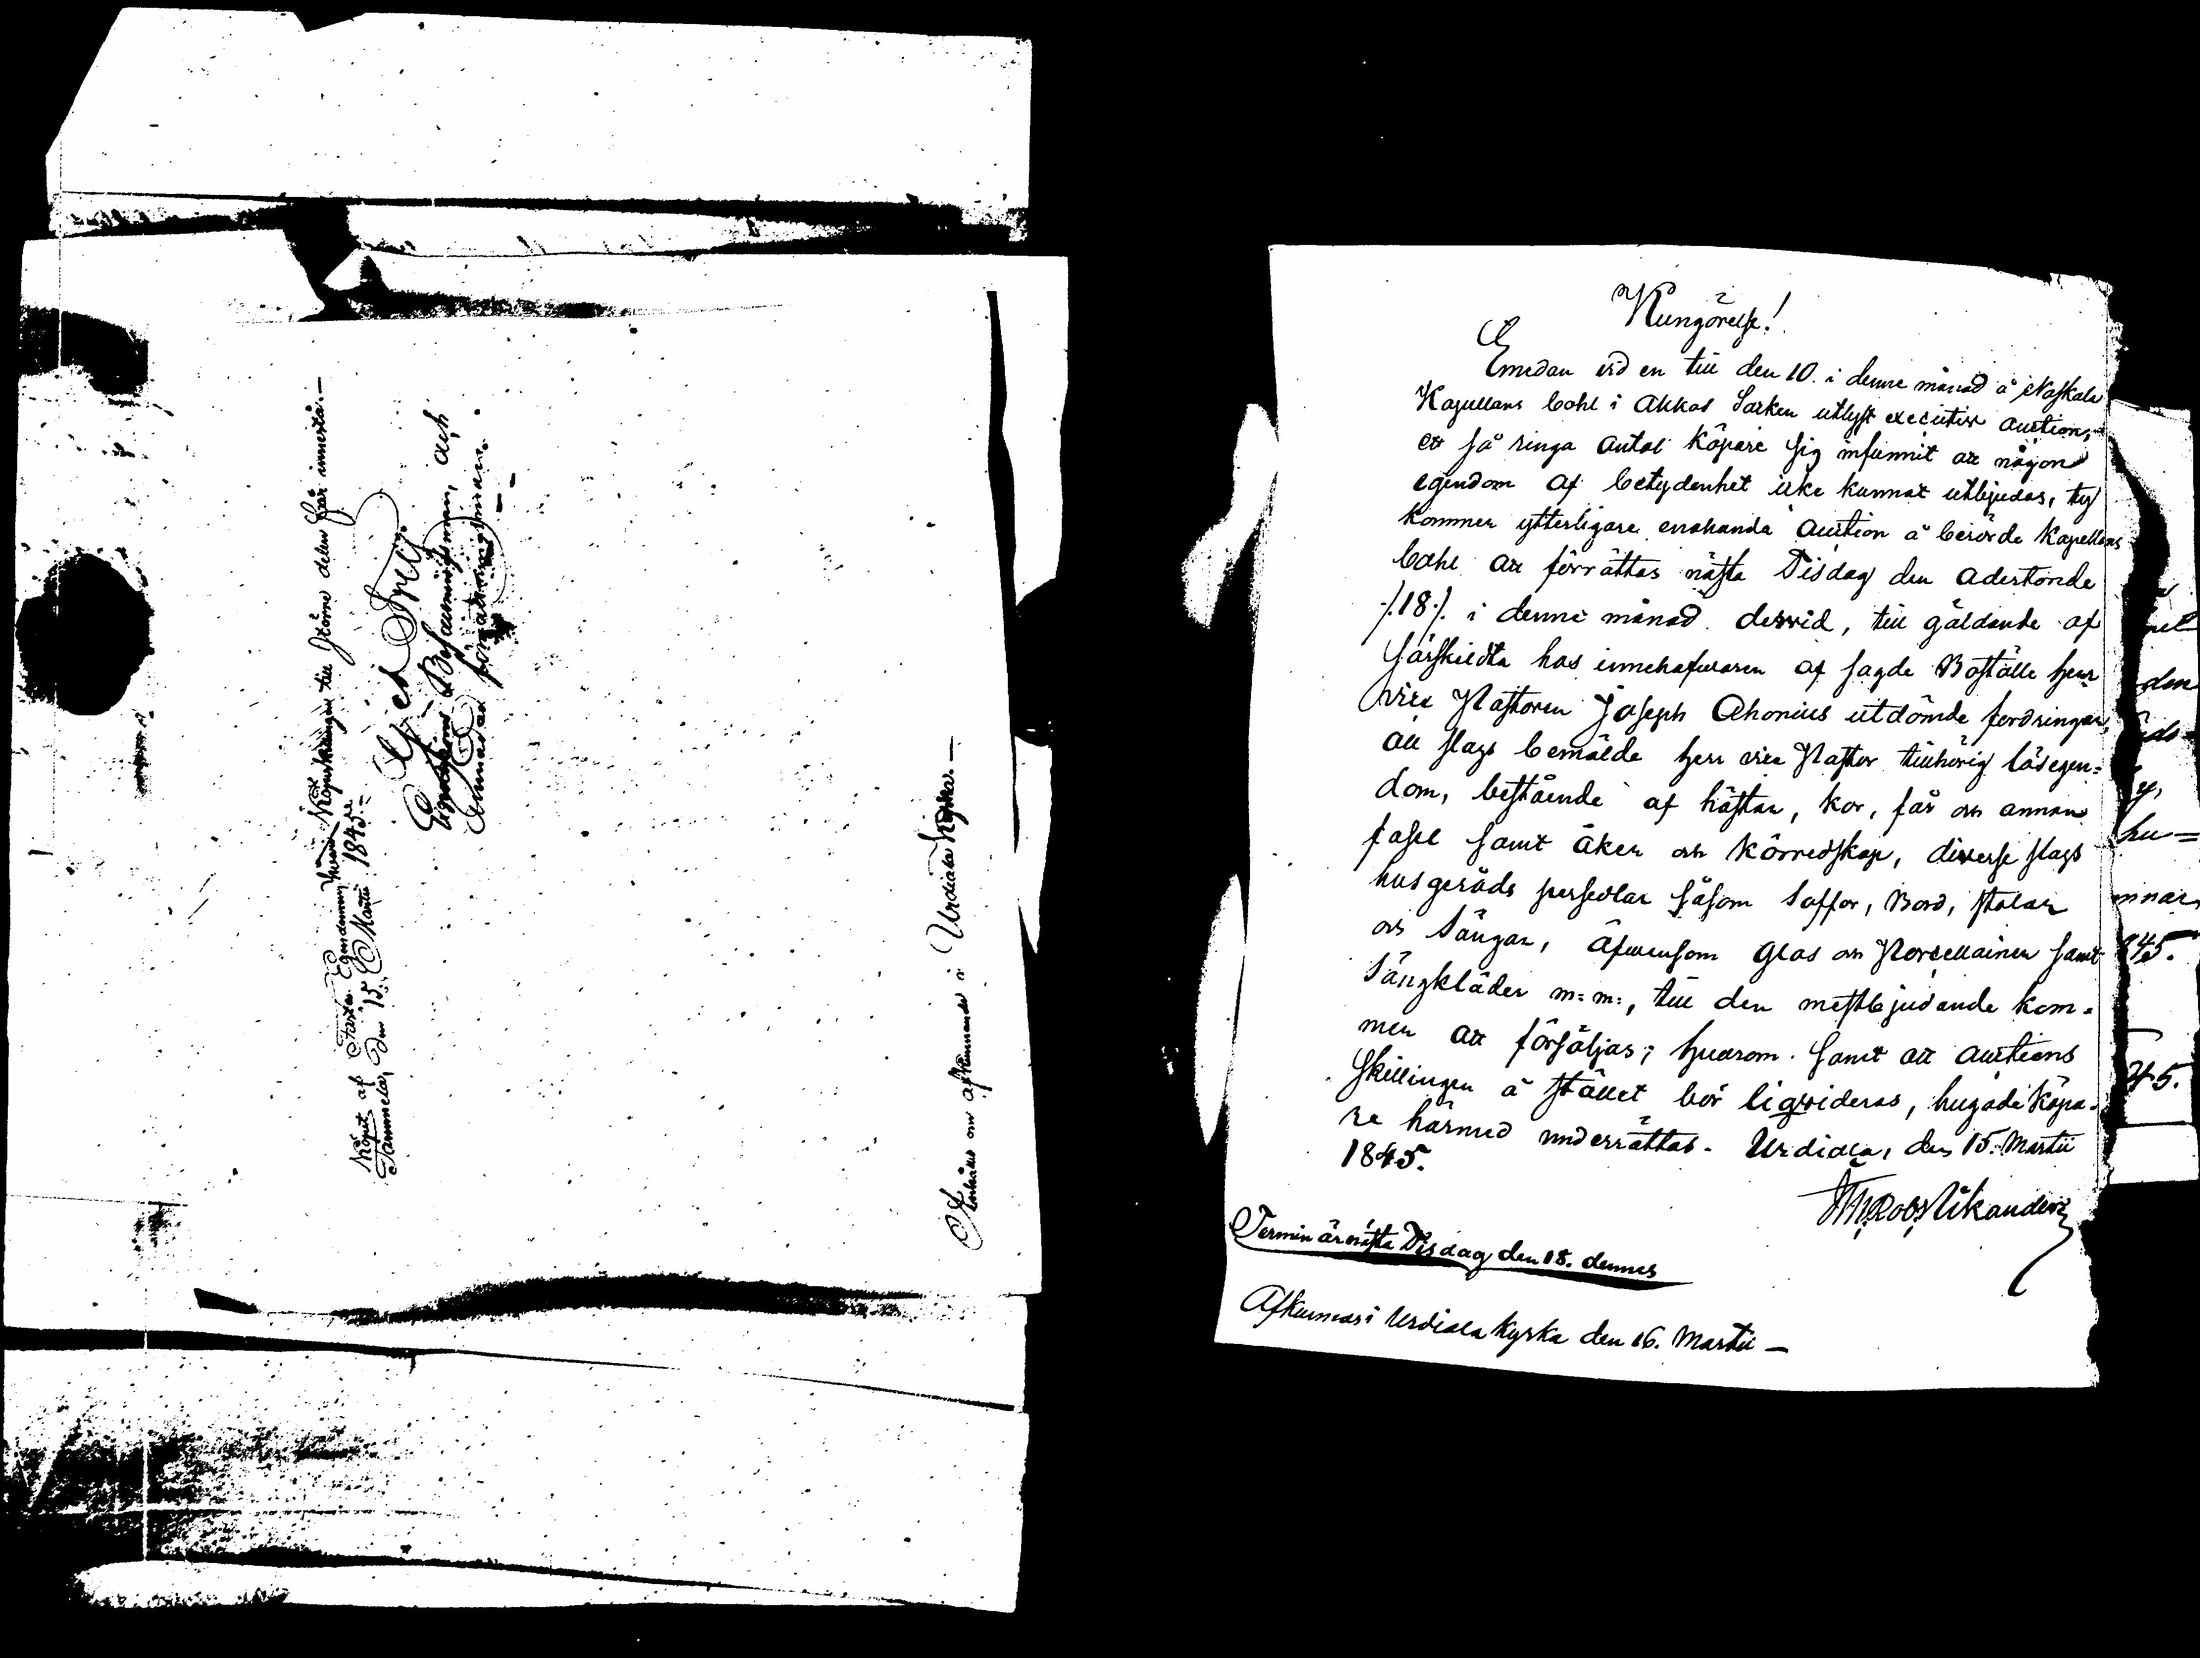 köpt af Fastes Egendomen, hwaraf Köpeskillingen till större delen får innestå.—
Tammela, Den 15. Martii 1845.
Embetsmans Befallningsman, och
Anhålles om afkunnande i Urdiala Kyrka.—
Kungörelse!
Emedan vid en till den 10. i denne månad å Naskala
Kapellans bohl i Akkas Socken utlyst executiv auction,
ett så ringa antal köpare sig infunnit att någon
egendom af betydenhet icke kunnat utbjudas, ty
kommer ytterligare enahanda Auction å berörde Kapellans
bohl att förrättas nästa Tisdag den adertonde
/.18./. i denne månad derwid, till gäldande af
särskildta hos innehafwaren af sagde Boställe herr
vice Pastoren Joseph Ahonius utdömde fordringar,
all slags bemälde herr vice Pastor tillhörig lösegen=
dom, bestående af hästar, kor, får och annan
fasel samt åker och körredskap, diverse slags
husgeråds persedlar såsom Soffor, Bord, stolar
och Sängar, äfwensom Glas och Porcellainer samt
Sängkläder m: m:, till den mestbjudande kom=
mer att försäljas; hwarom samt att auctions
skillingen å stället bör liqvideras, hugade köpa=
re härmed underrättas. Urdiala, den 15. Martii
1845.
Termin är nästa Tisdag den 18. dennes
Afkunnas i Urdiala Kyrka den 16. Martii —
den
hu=
845.
45.